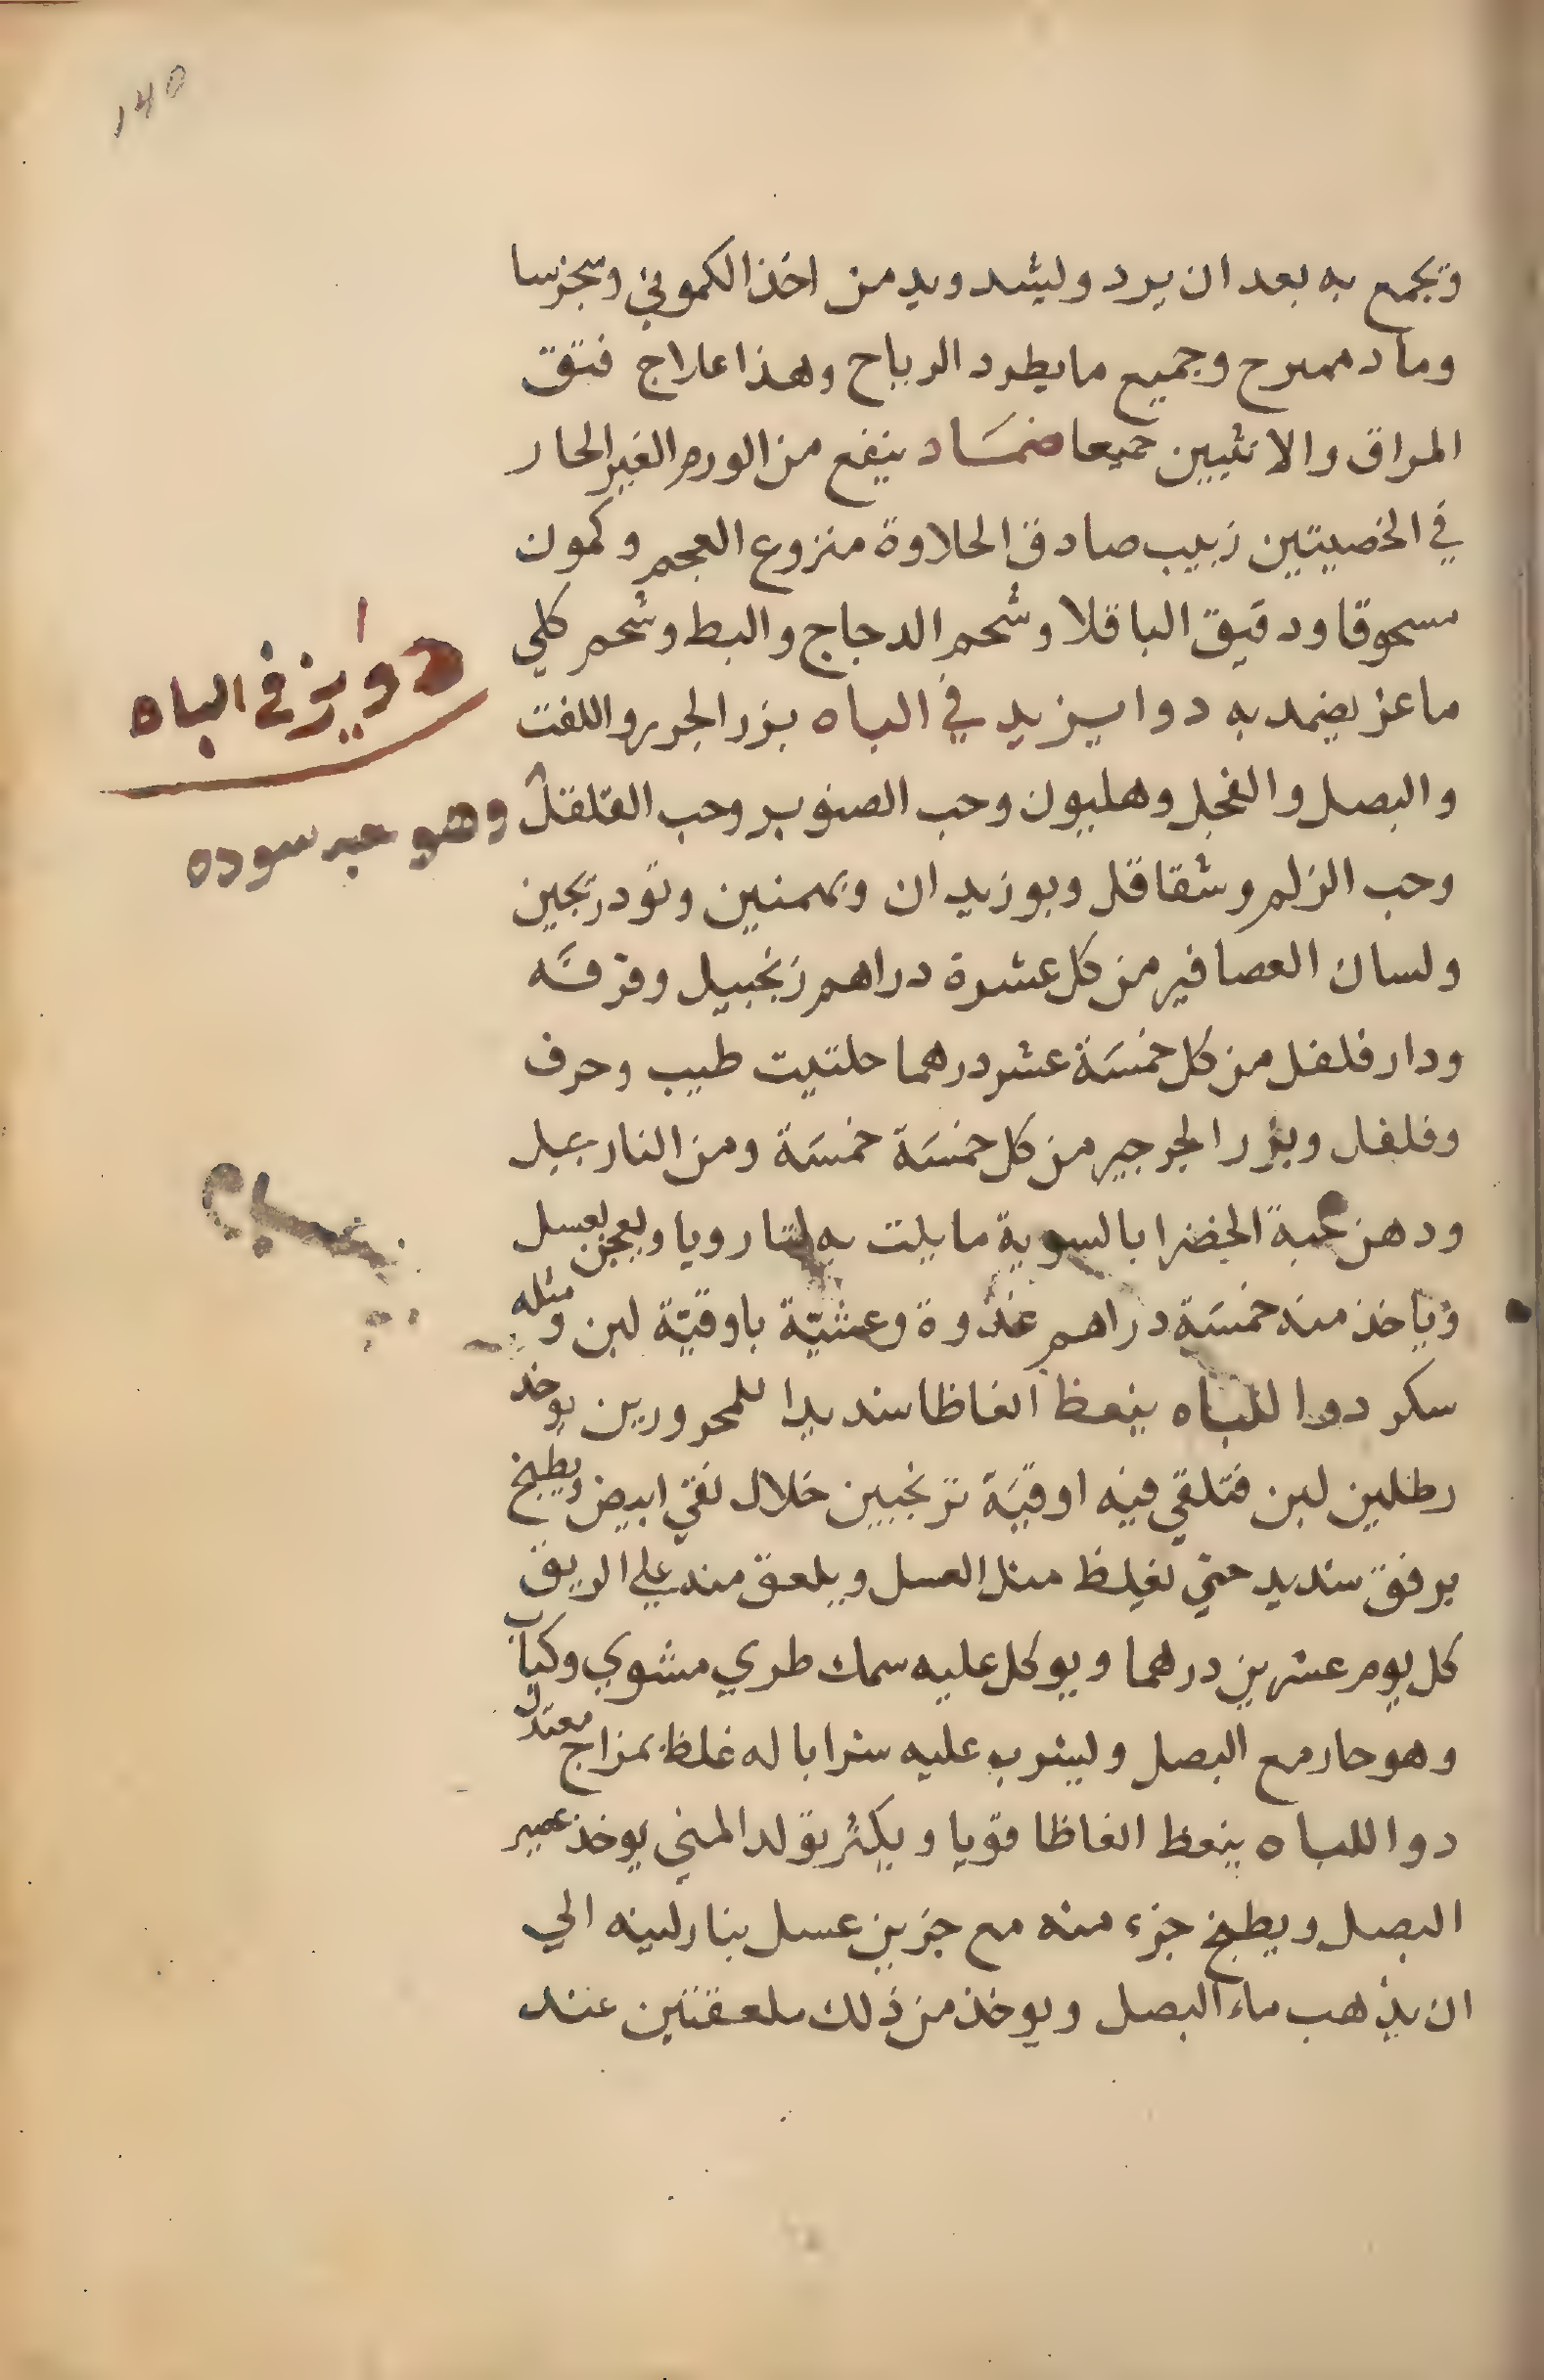 ١٤٥
وتجمع به بعد ان يبرد وليشد ويدمن اخذ الكموني وسجزينا
وما د ممرح وجميع ما يطرد الرياح وهذا علاج فتق
المراق والانثيين جميعا ضمَاد ينفع من الورم الغير الحار
في الخصيتين زبيب صادق الحلاوة منزوع العجم وكمون
مسحوقا ودقيق الباقلا وشحم الدجاج والبط وشحم كلي
ماعز يضمد به دوا يزيد في الباه بزر الجزر واللفت
والبصل والفجل وهليون وحب الصنوبر وحب القلقل
وحب الزلم وشقاقل وبوزيدان وبهمنين وتودرنجين
ولسان العصافير من كل عشرة دراهم زنجبيل وقرفَه
ودار فلفل من كل خمسَة عشر درهما حلتيت طيب وحرف
وفلفل وبزر الجرجير من كل خمسَة خمسَة ومن النارجيل
ودهن حبة الخضرا بالسوية ما يلت به لتا رويا ويعجن بعسل
وياخذ منه خمسَة دراهم غدوة وعشيّة باوقيّة لبن ومثله
سكر دوا للباه ينعظ انعاظا شديدا للمحرورين يوخذ
رطلين لبن فتلقي فيه اوقيَة ترنجبين خلال نقي ابيض ويطبخ
برفق شديد حتي تغلظ مثل العسل ويلعق منه علي الريق
كل يوم عشرين درهما ويوكل عليه سمك طري مشوي وكباب
وهو حار مع البصل وليشرب عليه شرابا له غلظ بمزاج معتدل
دوا للباه ينعظ انعاظا قويا ويكثر تولد المني يوخذ عصير
البصل ويطبخ جزء منه مع جزين عسل بنار لينه الي
ان يذهب ماء البصل ويوخذ من ذلك ملعقتين عند
دوا يز في الباه
وهو حبه سوده